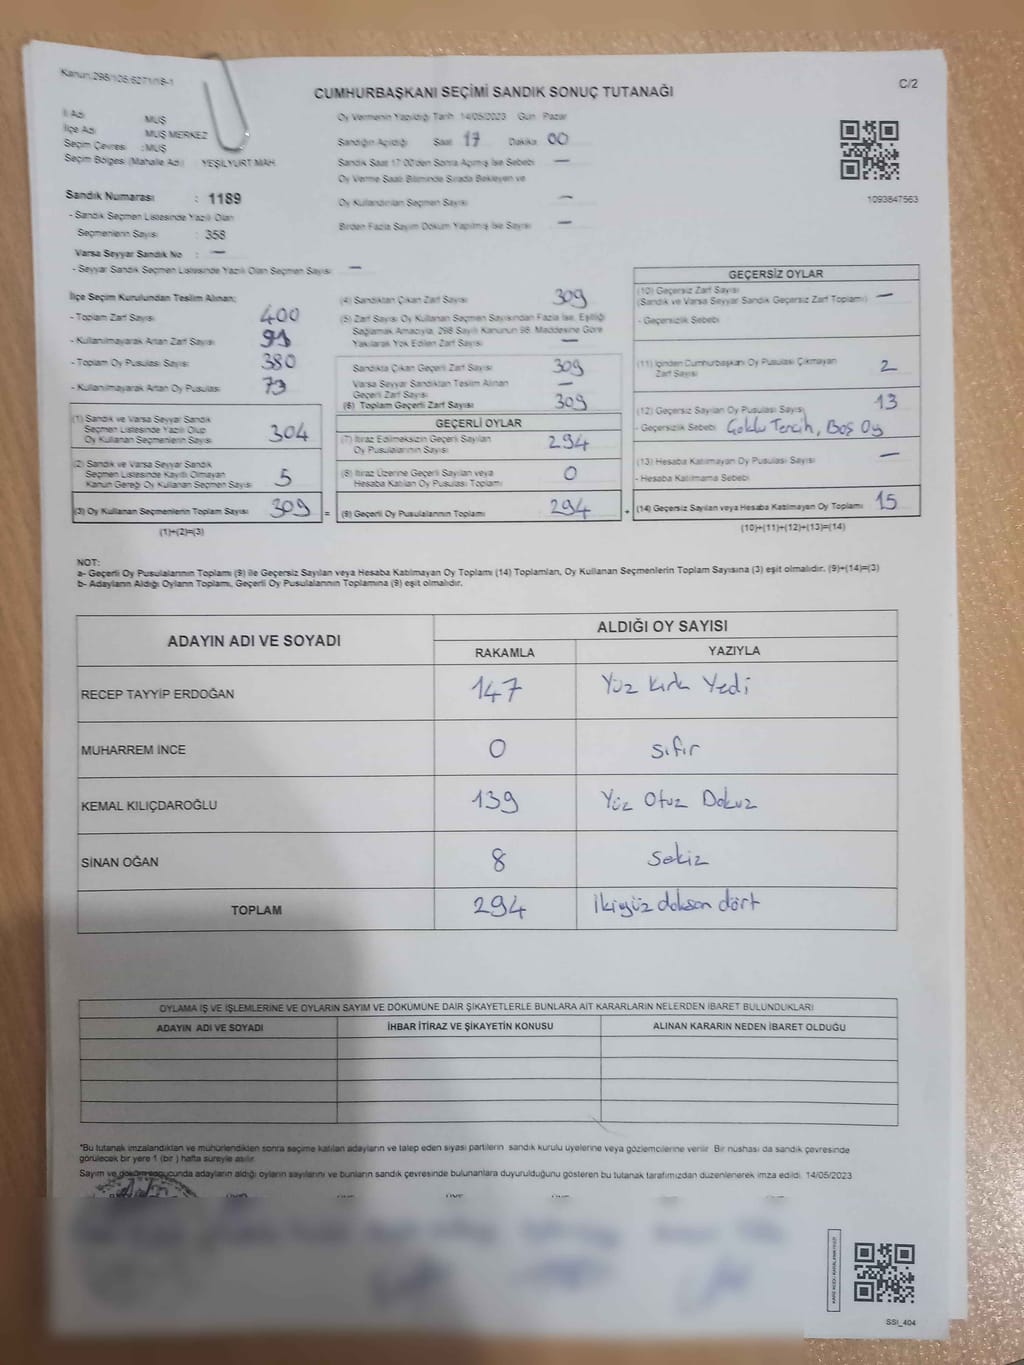 Kanun:298/105:6271/18-1
C/2
CUMHURBAŞKANI SEÇİMİ SANDIK SONUÇ TUTANAĞI
İl Adı : MUŞ
İlçe Adı : MUŞ MERKEZ
Seçim Çevresi : MUŞ
Seçim Bölgesi (Mahalle Adı) : YEŞİLYURT MAH.
Sandık Numarası : 1189
- Sandık Seçmen Listesinde Yazılı Olan
Seçmenlerin Sayısı : 358
Varsa Seyyar Sandık No : —
- Seyyar Sandık Seçmen Listesinde Yazılı Olan Seçmen Sayısı —
Oy Vermenin Yapıldığı Tarih 14/05/2023 Gün Pazar
Sandığın Açıldığı Saat 17 Dakika 00
Sandık Saat 17:00'den Sonra Açılmış İse Sebebi —
Oy Verme Saati Bitiminde Sırada Bekleyen ve
Oy Kullandırılan Seçmen Sayısı —
Birden Fazla Sayım Döküm Yapılmış İse Sayısı —
1093847563
İlçe Seçim Kurulundan Teslim Alınan;
- Toplam Zarf Sayısı 400
- Kullanılmayarak Artan Zarf Sayısı 91
- Toplam Oy Pusulası Sayısı 380
- Kullanılmayarak Artan Oy Pusulası 73
(1) Sandık ve Varsa Seyyar Sandık
Seçmen Listesinde Yazılı Olup
Oy Kullanan Seçmenlerin Sayısı 304
(2) Sandık ve Varsa Seyyar Sandık
Seçmen Listesinde Kayıtlı Olmayan
Kanun Gereği Oy Kullanan Seçmen Sayısı 5
(3) Oy Kullanan Seçmenlerin Toplam Sayısı 309 =
(1)+(2)=(3)
(4) Sandıktan Çıkan Zarf Sayısı 309
(5) Zarf Sayısı Oy Kullanan Seçmen Sayısından Fazla İse, Eşitliği
Sağlamak Amacıyla, 298 Sayılı Kanunun 98. Maddesine Göre
Yakılarak Yok Edilen Zarf Sayısı —
Sandıkta Çıkan Geçerli Zarf Sayısı 309
Varsa Seyyar Sandıktan Teslim Alınan
Geçerli Zarf Sayısı —
(6) Toplam Geçerli Zarf Sayısı 309
GEÇERLİ OYLAR
(7) İtiraz Edilmeksizin Geçerli Sayılan
Oy Pusulalarının Sayısı 294
(8) İtiraz Üzerine Geçerli Sayılan veya
Hesaba Katılan Oy Pusulası Toplamı 0
(9) Geçerli Oy Pusulalarının Toplamı 294 +
GEÇERSİZ OYLAR
(10) Geçersiz Zarf Sayısı
(Sandık ve Varsa Seyyar Sandık Geçersiz Zarf Toplamı) —
- Geçersizlik Sebebi
(11) İçinden Cumhurbaşkanı Oy Pusulası Çıkmayan
Zarf Sayısı 2
(12) Geçersiz Sayılan Oy Pusulası Sayısı 13
- Geçersizlik Sebebi Çoklu Tercih, Boş Oy
(13) Hesaba Katılmayan Oy Pusulası Sayısı —
- Hesaba Katılmama Sebebi
(14) Geçersiz Sayılan veya Hesaba Katılmayan Oy Toplamı 15
(10)+(11)+(12)+(13)=(14)
NOT:
a- Geçerli Oy Pusulalarının Toplamı (9) ile Geçersiz Sayılan veya Hesaba Katılmayan Oy Toplamı (14) Toplamları, Oy Kullanan Seçmenlerin Toplam Sayısına (3) eşit olmalıdır. (9)+(14)=(3)
b- Adayların Aldığı Oyların Toplamı, Geçerli Oy Pusulalarının Toplamına (9) eşit olmalıdır.
ADAYIN ADI VE SOYADI
ALDIĞI OY SAYISI
RAKAMLA YAZIYLA
RECEP TAYYİP ERDOĞAN 147 Yüz Kırk Yedi
MUHARREM İNCE 0 sıfır
KEMAL KILIÇDAROĞLU 139 Yüz Otuz Dokuz
SİNAN OĞAN 8 Sekiz
TOPLAM 294 İkiyüz doksan dört
OYLAMA İŞ VE İŞLEMLERİNE VE OYLARIN SAYIM VE DÖKÜMÜNE DAİR ŞİKAYETLERLE BUNLARA AİT KARARLARIN NELERDEN İBARET BULUNDUKLARI
ADAYIN ADI VE SOYADI İHBAR İTİRAZ VE ŞİKAYETİN KONUSU ALINAN KARARIN NEDEN İBARET OLDUĞU
*Bu tutanak imzalandıktan ve mühürlendikten sonra seçime katılan adayların ve talep eden siyasi partilerin sandık kurulu üyelerine veya gözlemcilerine verilir. Bir nushası da sandık çevresinde
görülecek bir yere 1 (bir) hafta süreyle asılır.
Sayım ve döküm sonucunda adayların aldığı oyların sayılarını ve bunların sandık çevresinde bulunanlara duyurulduğunu gösteren bu tutanak tarafımızdan düzenlenerek imza edildi. 14/05/2023
SSİ_404